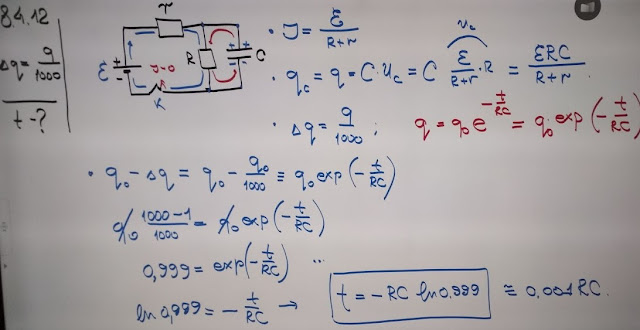 8.4.12
Δq = q/1000
t - ?
r
R
C
ℰ
+
-
J=0
K
+ +
- -
• J = ℰ/(R+r)
u_c
• q_c = q = C·u_c = C ℰ/(R+r)·R = ℰRC/(R+r)
• Δq = q/1000 ; q = q₀e^(-t/RC) = q₀ exp(-t/RC)
• q₀ - Δq = q₀ - q₀/1000 = q₀ exp(-t/RC)
q₀ (1000-1)/1000 = q₀ exp(-t/RC)
0,999 = exp(-t/RC) ...
ln 0,999 = - t/RC → t = -RC ln 0.999 ≅ 0,001RC.